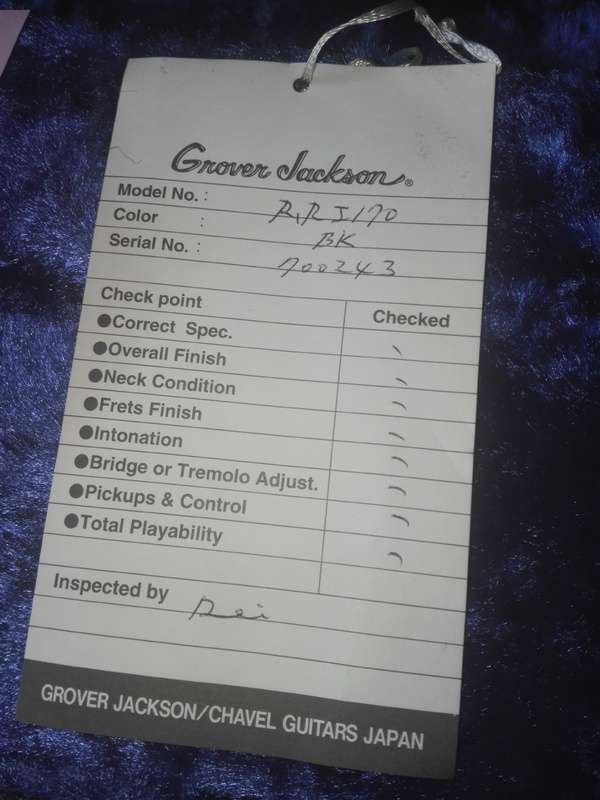 Grover Jackson®
Model No. : RRJ170
Color : BK
Serial No. : 700243
Check point Checked
●Correct Spec.
●Overall Finish
●Neck Condition
●Frets Finish
●Intonation
●Bridge or Tremolo Adjust.
●Pickups & Control
●Total Playability
Inspected by
GROVER JACKSON/CHAVEL GUITARS JAPAN